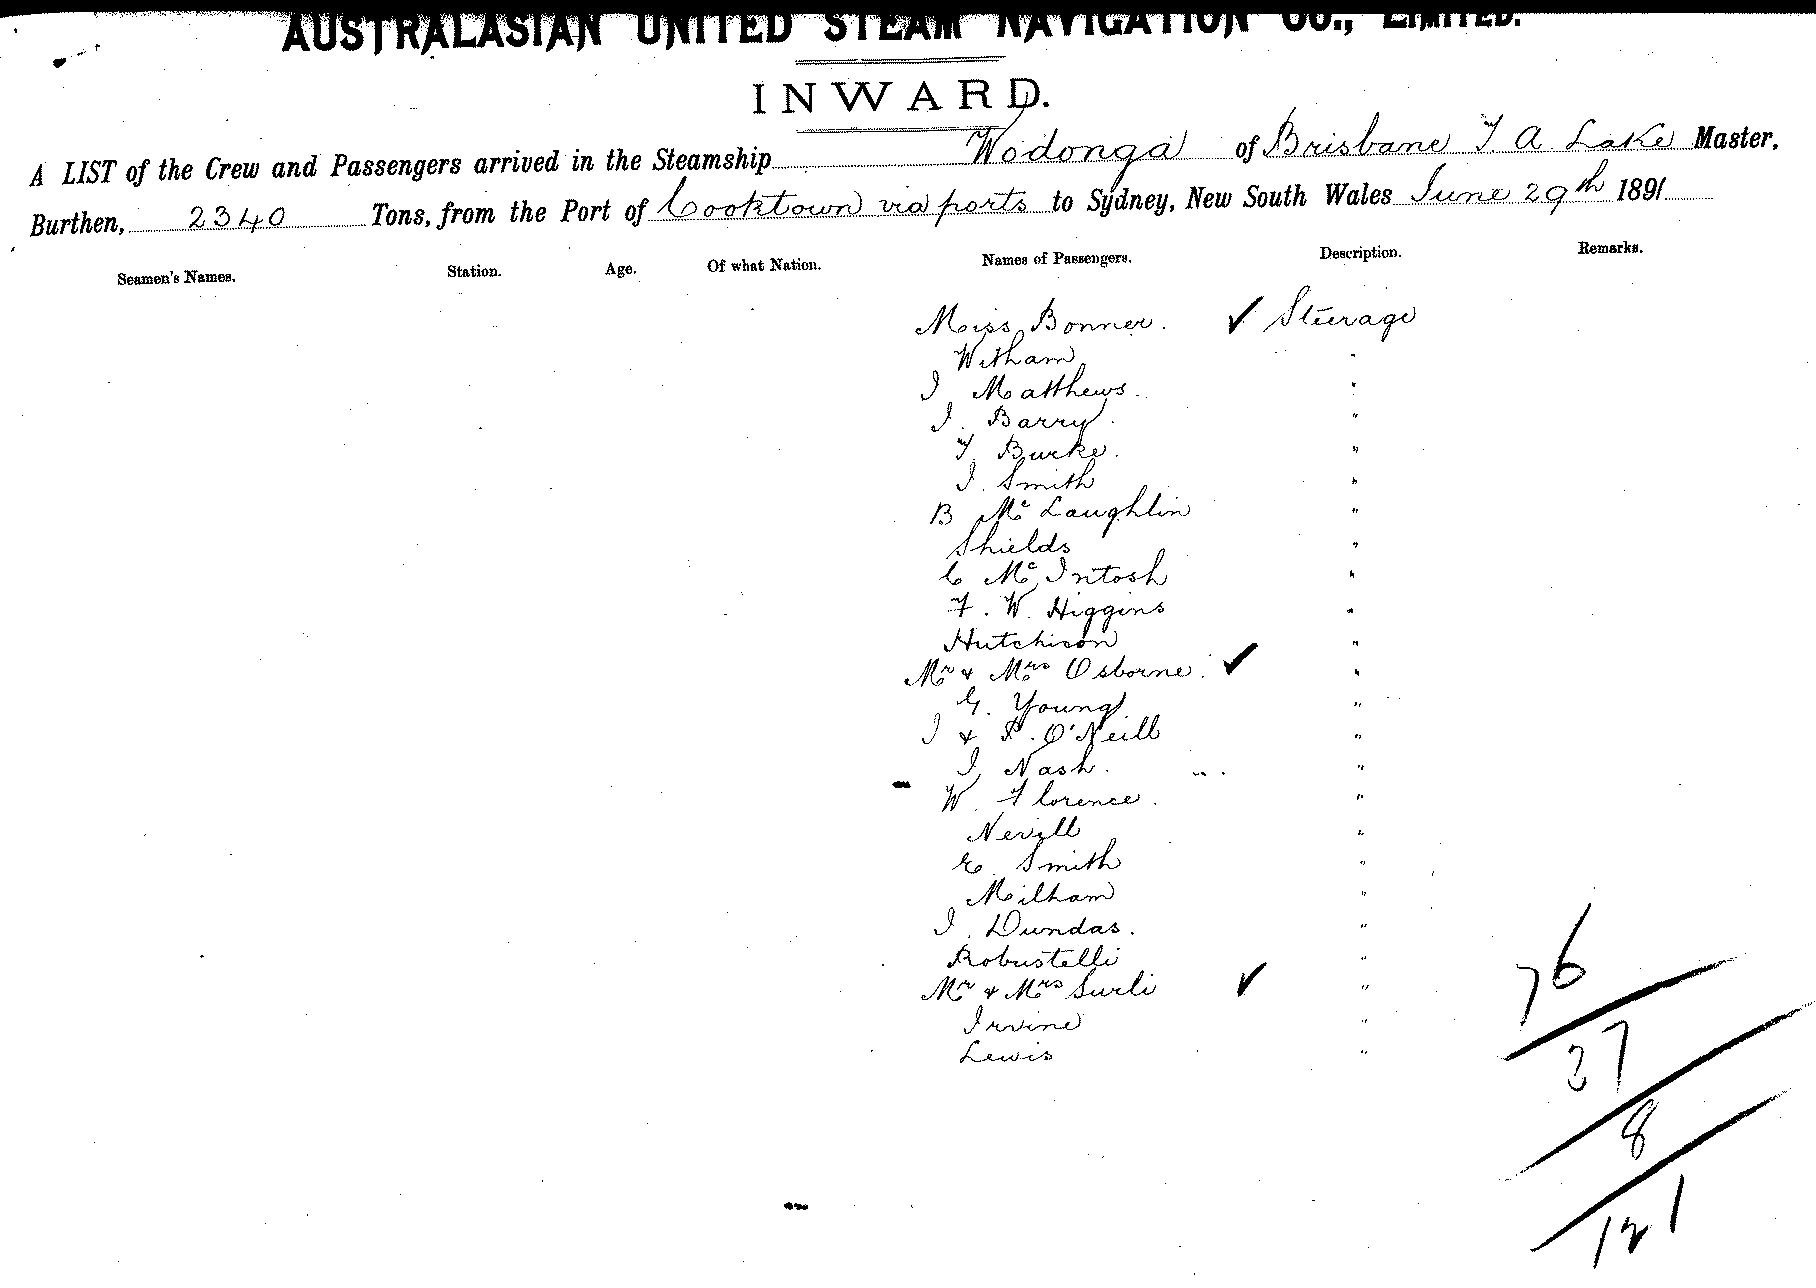 AUSTRALASIAN UNITED STEAM NAVIGATION CO., LIMITED.
INWARD.
A LIST of the Crew and Passengers arrived in the Steamship Wodonga of Brisbane T. A Lake Master,
Burthen, 2340 Tons, from the Port of Cooktown via ports to Sydney, New South Wales June 29th 1891
Seamen's Names. Station. Age. Of what Nation. Names of Passengers. Description. Remarks.
Miss Bonner. ✓ Steerage
Witham "
J Matthews. "
J. Barry. "
T. Burke. "
J. Smith "
B McLaughlin "
Shields "
C McIntosh "
F. W. Higgins "
Hutchison "
Mr & Mrs Osborne. ✓ "
G. Young "
J & P. O'Neill "
J. Nash. "
W. Florence. "
Nevill "
E Smith "
Milham "
J. Dundas. "
Robustelli "
Mr & Mrs Surli ✓ "
Irvine "
Lewis "
76
37
8
121